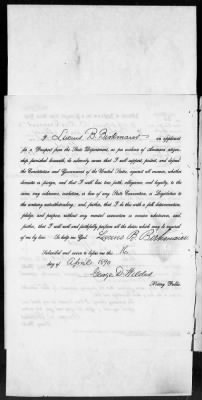 I Lucius B.
an applicant
for a Passport from the State Department, as per evidence of American citizen-
ship furnished herewith, do solemnly swear that I will support, protect, and defend
the Constitution and Government of the United States, against all enemies, whether
domestic or foreign, and that I will bear true faith, allegiance, and loyalty to the
same, any ordinance, resolution, or law of any State, Convention, or Legislature to
the contrary notwithstanding; and further, that I do this with a full determination,
pledge, and purpose, without any mental reservation or evasion whatsoever; and
further, that I will well and faithfully perform all the duties which may be required
of me by law. So help me God. Lucius B.
Subscribed and sworn to before me this
day of April 1890
George D.
Notary Public.